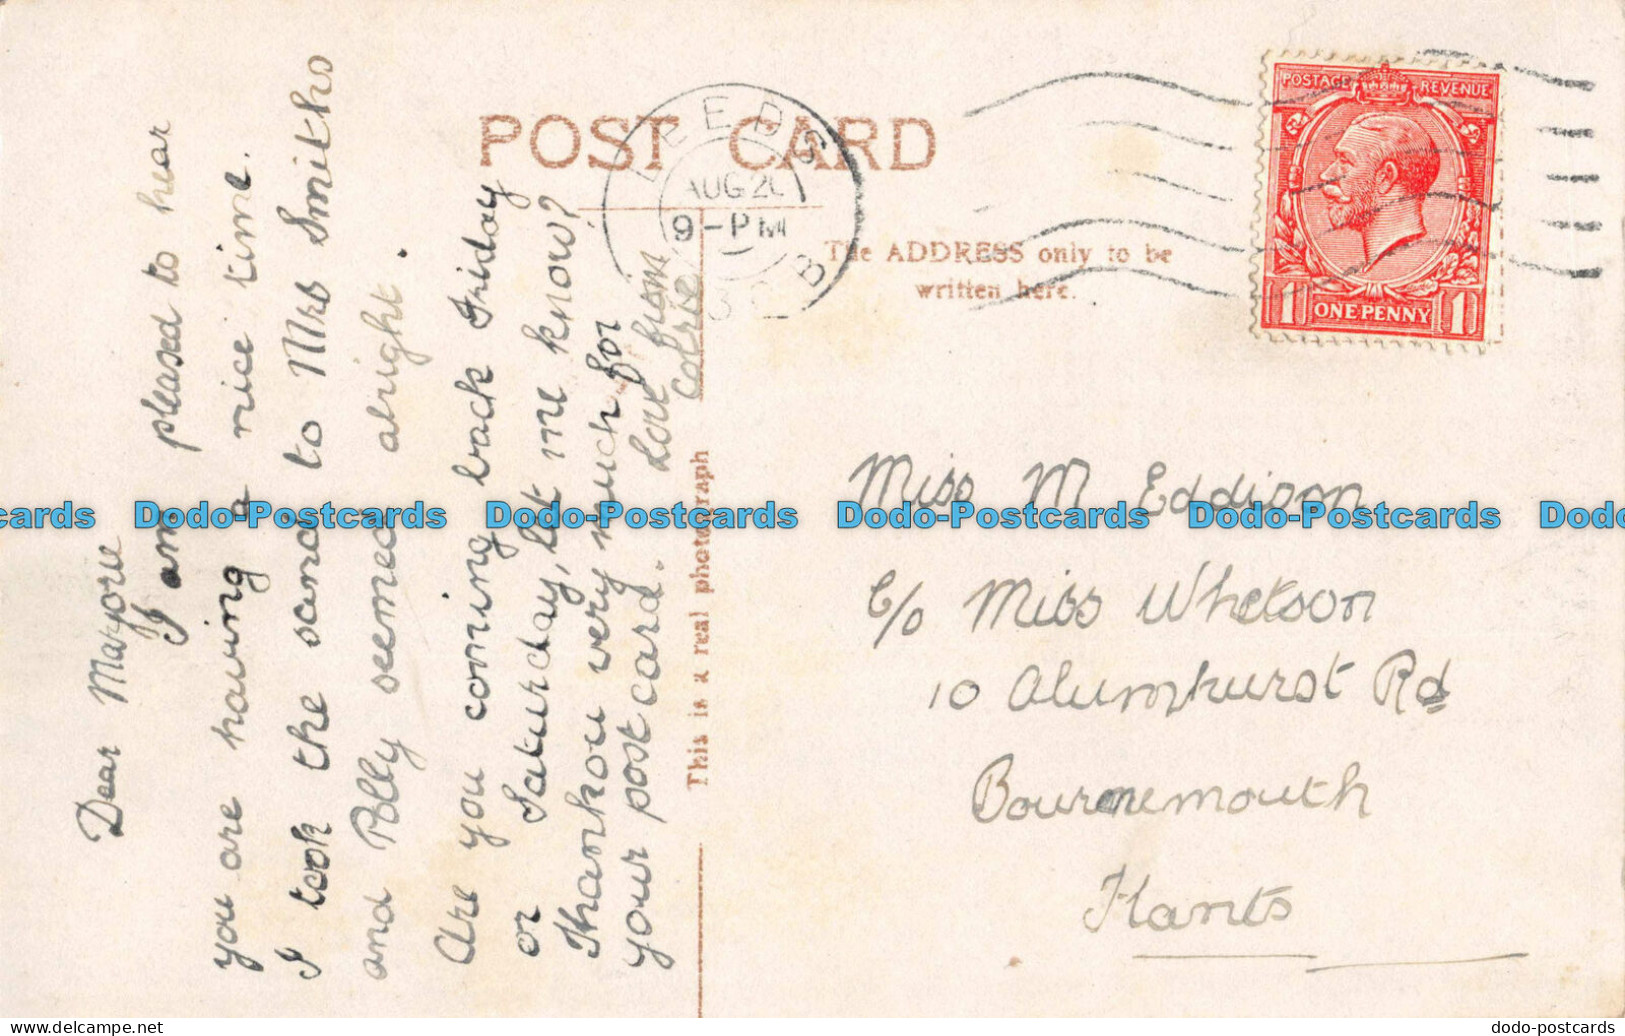 POST CARD
LEEDS
AUG 20
9 - PM
B
POSTAGE REVENUE
1 ONE PENNY 1
The ADDRESS only to be
written here.
This is a real photograph
Dear Marjorie
I am pleased to hear
you are having a nice time.
I took the sand to Mrs Smiths
and Polly seemed alright.
Are you coming back Friday
or Saturday, let me know?
Thankou very much for
your post card. Love from
Miss M Eddison
C/o Miss Whetson
10 Alumhurst Rd
Bournemouth
Hants
Dodo-Postcards Dodo-Postcards Dodo-Postcards Dodo-Postcards
www.delcampe.net
dodo-postcards